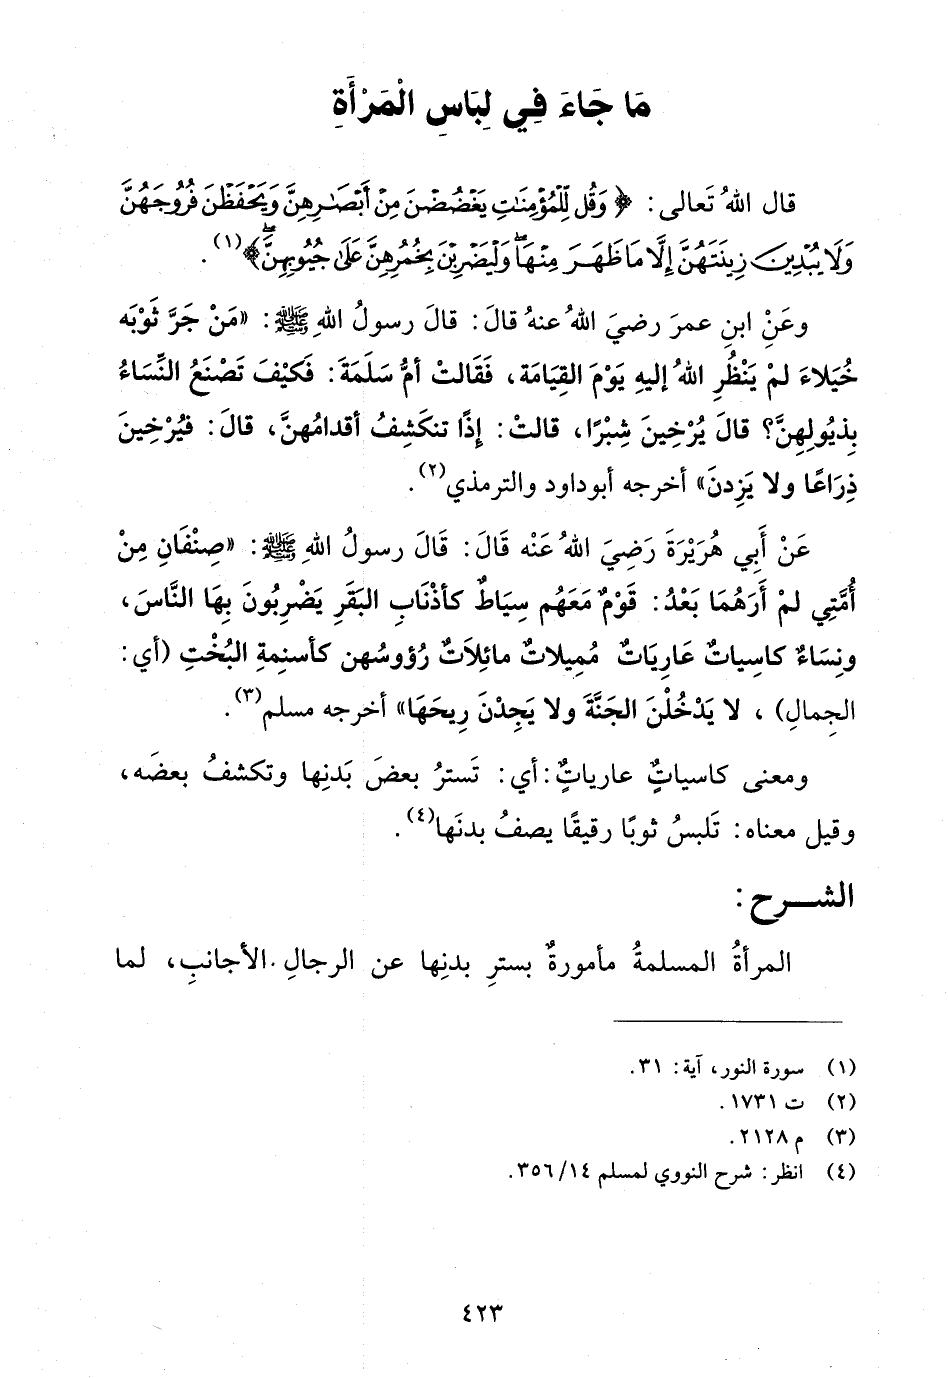 مَا جَاءَ فِي لِبَاسِ الْمَرْأَةِ
قال اللهُ تَعالى: ﴿وَقُل لِّلْمُؤْمِنَٰتِ يَغْضُضْنَ مِنْ أَبْصَٰرِهِنَّ وَيَحْفَظْنَ فُرُوجَهُنَّ
وَلَا يُبْدِينَ زِينَتَهُنَّ إِلَّا مَا ظَهَرَ مِنْهَاۖ وَلْيَضْرِبْنَ بِخُمُرِهِنَّ عَلَىٰ جُيُوبِهِنَّۖ﴾(١).
وعَنْ ابنِ عمرَ رضيَ اللهُ عنهُ قالَ: قالَ رسولُ اللهِ ﷺ: «مَنْ جَرَّ ثَوْبَه
خُيَلاءَ لمْ يَنْظُرِ اللهُ إليهِ يَوْمَ القِيَامَة، فَقَالتْ أمُّ سَلَمَةَ: فَكَيْفَ تَصْنَعُ النِّسَاءُ
بِذيُولِهِنَّ؟ قالَ يُرْخِينَ شِبْرًا، قالتْ: إذًا تنكَشِفُ أقدامُهنَّ، قالَ: فيُرْخِينَ
ذِرَاعًا ولا يَزِدنَ» أخرجه أبوداود والترمذي(٢).
عَنْ أَبِي هُرَيْرَةَ رَضِيَ اللهُ عَنْه قَالَ: قَالَ رسولُ اللهِ ﷺ: «صِنْفَانِ مِنْ
أُمَّتِي لمْ أَرَهُمَا بَعْدُ: قَوْمٌ مَعَهُم سِيَاطٌ كأذْنَابِ البَقَرِ يَضْرِبُونَ بِهَا الناسَ،
ونِسَاءٌ كاسِياتٌ عَارِيَاتٌ مُمِيلاتٌ مائِلاَتٌ رُؤوسُهن كأسنِمةِ البُخْتِ (أي:
الجِمالِ)، لا يَدْخُلْنَ الجَنَّةَ ولا يَجِدْنَ رِيحَهَا» أخرجه مسلم(٣).
ومعنى كاسياتٌ عارياتٌ: أي: تَسترُ بعضَ بَدنِها وتكشفُ بعضَه،
وقيل معناه: تَلبسُ ثوبًا رقيقًا يصفُ بدنَها(٤).
الشـــرح:
المرأةُ المسلمةُ مأمورةٌ بسترِ بدنِها عن الرجالِ الأجانبِ، لما
(١) سورة النور، آية: ٣١.
(٢) ت ١٧٣١.
(٣) م ٢١٢٨.
(٤) انظر: شرح النووي لمسلم ٣٥٦/١٤.
٤٢٣